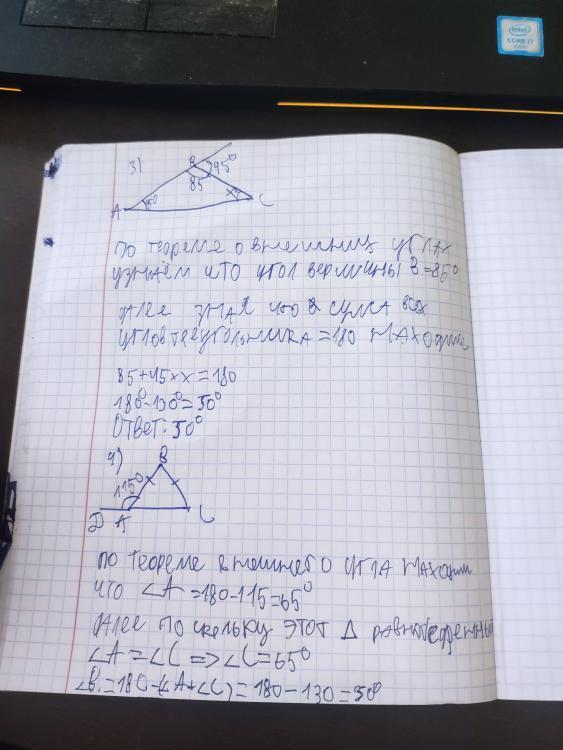 intel
CORE i7
3)
B
95°
85
A
x
C
по теореме о внешних углах
узнаём что угол вершины B=85°
далее зная что сумма всех
углов треугольника=180 находим
85+45+x=180
180°-130°=50°
Ответ: 50°
4)
B
115°
D A C
по теореме внешнего угла находим
что ∠A=180-115=65°
далее поскольку этот Δ равнобедренный
∠A=∠C=>∠C=65°
∠B=180-(∠A+∠C)=180-130=50°